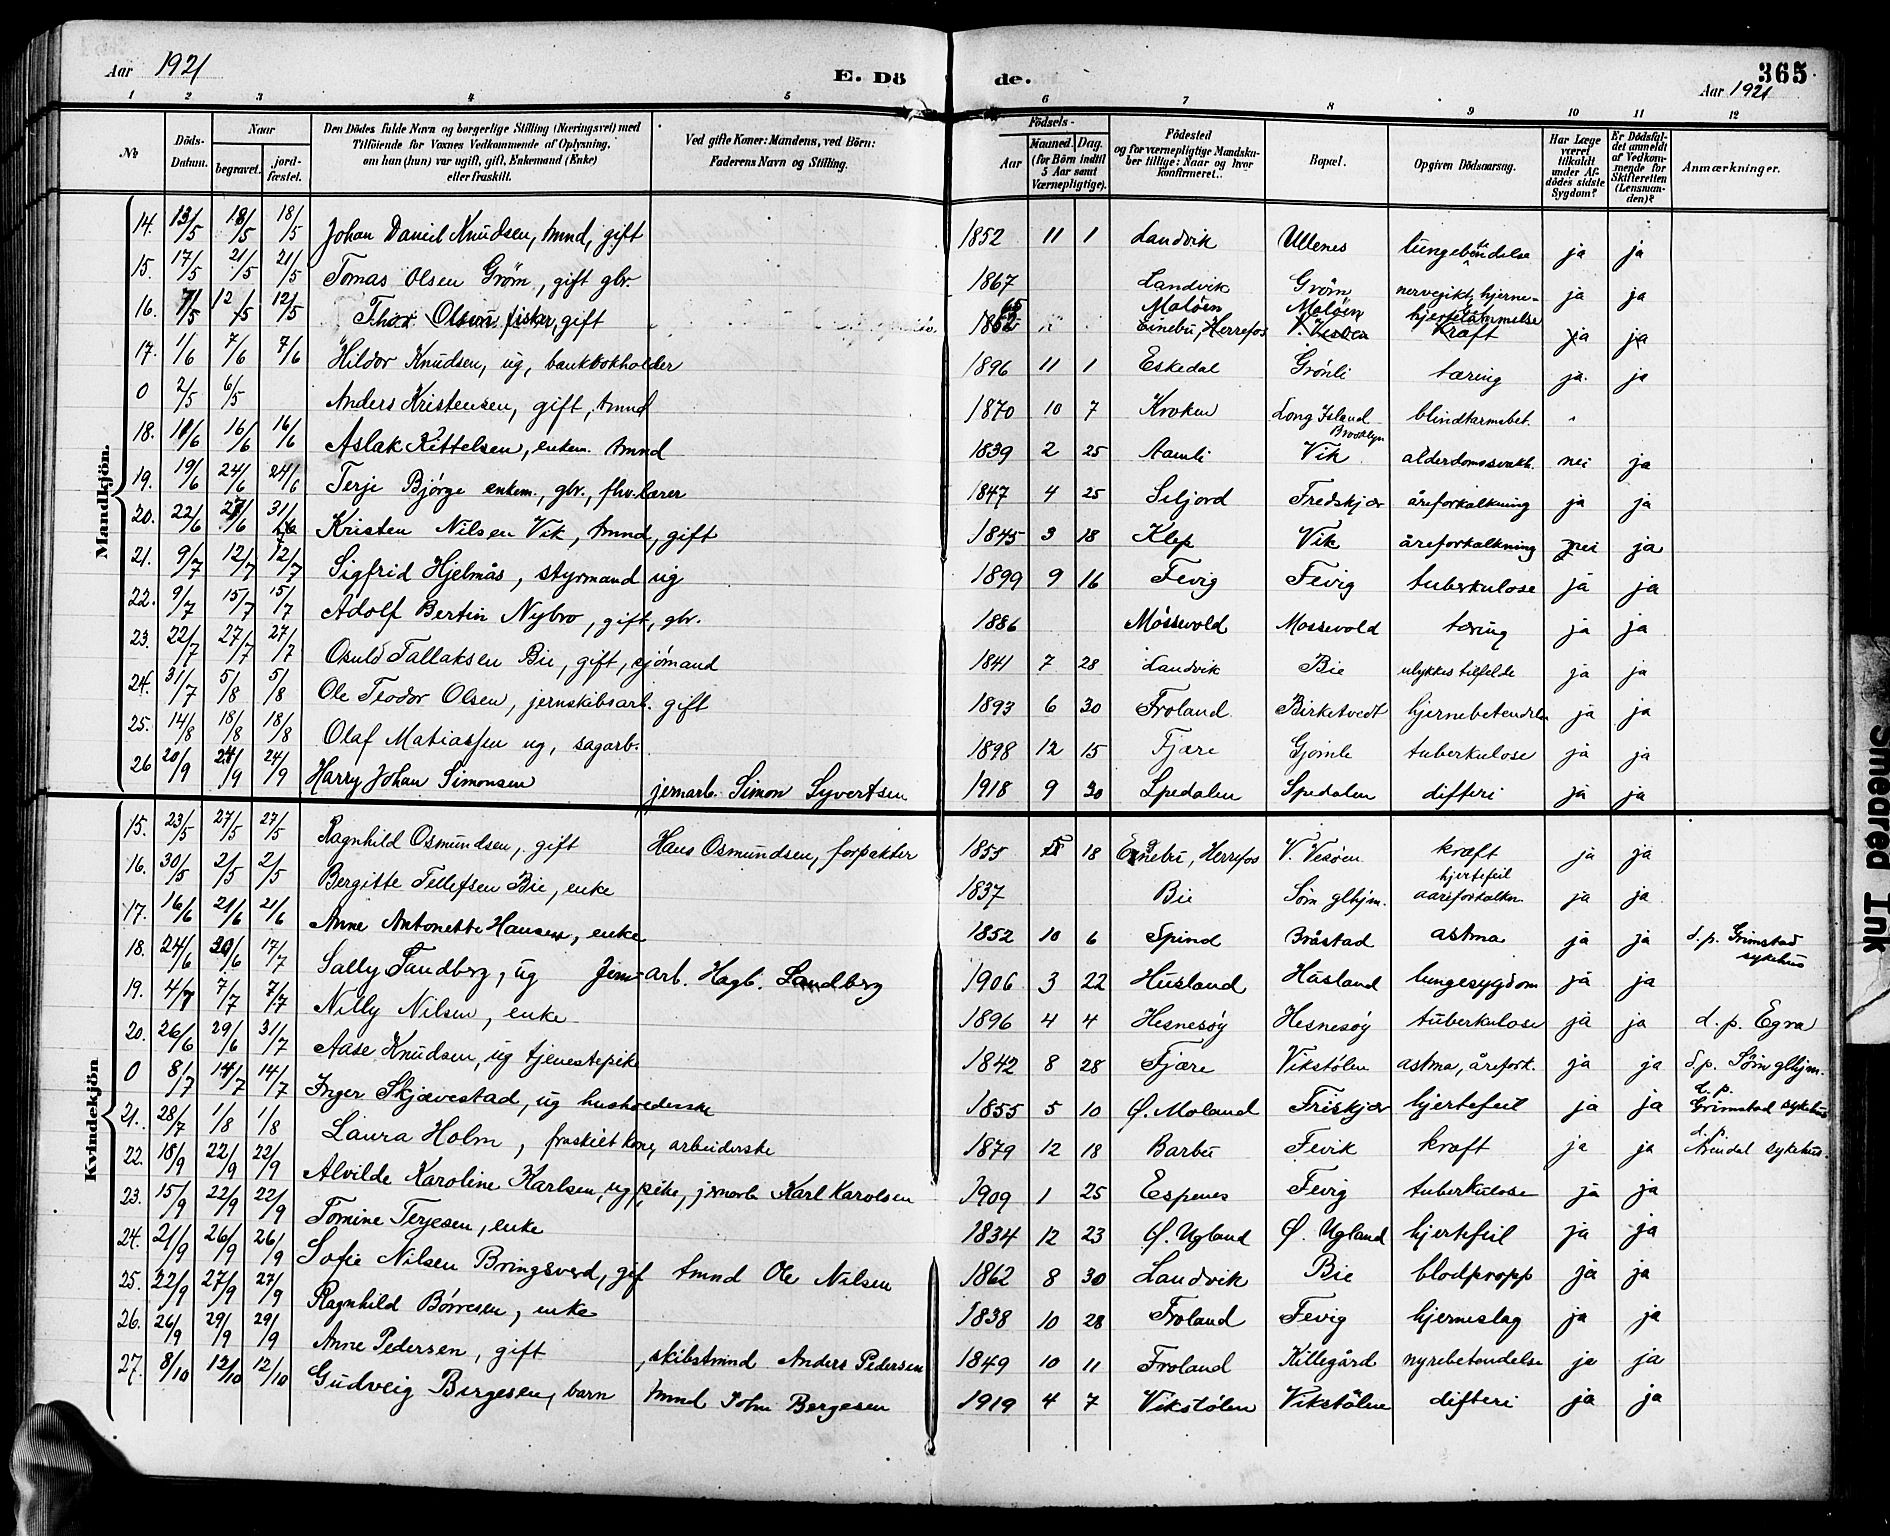 Aar 1921
E. Dö
de.
365
Aar 1921
1 2 3 4 5 6 7 8 9 10 11 12
No
Döds-Datum.
Naar
begravet.
jord-fæstet.
Den Dödes fulde Navn og borgerlige Stilling (Næringsvei) med
Tilföiende for Voxnes Vedkommende af Oplysning,
om han (hun) var ugift, gift, Enkemand (Enke)
eller fraskilt.
Ved gifte Koner: Mandens, ved Börn:
Faderens Navn og Stilling.
Födsels-
Aar
Maaned. Dag.
(for Börn indtil
5 Aar samt
Værnepligtige).
Födested
og for værnepligtige Mandska-
ber tillige: Naar og hvor
konfirmeret.
Bopæl.
Opgiven Dödsaarsag.
Har Læge
været
tilkaldt
under Af-
dödes sidste
Sygdom?
Er Dödsfal-
det anmeldt
af Vedkom-
mende for
Skifteretten
(Lensman-
den)?
Anmærkninger.
Mandkjön.
14. 13/5 18/5 18/5 Johan Daniel Knudsen, tmnd, gift 1852 11 1 Landvik Ullenes lungebetendelse ja ja
15. 17/5 21/5 21/5 Tomas Olsen Gröm, gift gbr. 1867 Landvik Gröm nervegikt, hjerne- ja ja
16. 7/5 12/5 12/5 Thor Olsen fisker, gift Maløen Maløen hjertelammelse
Einebu, Herrefos V. Vesöen Kræft ja ja
17. 1/6 7/6 7/6 Hildor Knudsen, ug, bankbokholder 1896 11 1 Eskedal Grönli tæring ja. ja
0 2/5 6/5 Anders Kristensen, gift, tmnd 1870 10 7 Kroken Long Island Brooklyn blindtarmsbet. "
18. 11/6 16/6 16/6 Aslak Kittelsen, enkem. tmnd 1839 2 25 Aamli Vik alderdomssvakh. nei ja
19. 19/6 24/6 24/6 Terje Bjørge enkem., gbr., fhv. lærer 1847 4 25 Seljord Fredskjær åreforkalkning ja ja
20. 22/6 28/6 31/ Kristen Nilsen Vik, tmnd, gift 1845 3 18 Klep Vik åreforkalkning nei ja
21. 9/7 12/7 12/7 Sigfrid Hjelmås, styrmand ug 1899 9 16 Fevig Fevig tuberkulose ja ja
22. 9/7 15/7 15/7 Adolf Bertin Nybro, gift, gbr. 1886 Mössevold Mossevold tæring ja ja
23. 22/7 27/7 27/7 Osuld Tallaksen Bie, gift, sjömand 1841 7 28 Landvik Bie ulykkestilfelde ja ja
24. 31/7 5/8 5/8 Ole Teodor Olsen, jernskibsarb. gift 1893 6 30 Froland Birketvedt hjernebetendelse ja ja
25. 14/8 18/8 18/8 Olaf Matiassen ug, sagarb. 1898 12 15 Fjære Gjömle tuberkulose ja ja
26 20/9 24/9 24/9 Harry Johan Simonsen jernarb. Simon Syvertsen 1918 9 30 Spedalen Spedalen difteri ja ja
Kvindekjön
15. 23/5 27/5 27/5 Ragnhild Osmundsen, gift Hans Osmundsen, forpakter 1855 18 Einebu, Herrefos V. Vesöen kræft ja ja
16. 30/5 2/5 2/5 Bergitte Tellefsen Bie, enke 1837 Bie Söm glhjm. hjertefeil aareforkalkn ja ja
17. 16/6 21/6 21/6 Anne Antonette Hansen, enke 1852 10 6 Spind Bråstad astma ja ja d.p. Grimstad sykehus
18. 24/6 30/6 17/7 Sally Sandberg, ug Jern-arb. Hagb. Sandberg 1906 3 22 Husland Hasland lungesygdom ja ja
19. 4/7 7/7 7/7 Nilly Nilsen, enke 1896 4 4 Hesnesöy Hesnesöy tuberkulose ja ja d.p. Egra
20. 26/6 29/6 31/7 Aase Knudsen, ug tjenestepike 1842 8 28 Fjære Vikstölen astma, årefork. ja ja d.p. Söm glhjm.
0 8/7 14/7 14/7 Inger Skjævestad, ug husholderske 1855 5 10 Ø. Moland Friskjær hjertefeil ja ja d.p. Grimstad sykehus
21. 28/7 1/8 1/8 Laura Holm, fraskilt kone, arbeiderske 1879 12 18 Barbu Fevik kræft ja ja d.p. Arendal sykehus.
22. 18/9 22/9 22/9 Alvilde Karoline Karlsen, ug pike, jernarb Karl Karolsen 1909 1 25 Espenes Fevig tuberkulose ja ja
23. 15/9 22/9 22/9 Tomine Terjesen, enke 1834 12 23 Ø. Ugland Ø. Ugland hjertefeil ja ja
24. 21/9 26/9 26/9 Sofie Nilsen Bringsverd, gif tmnd Ole Nilsen 1862 8 30 Landvik Bie blodpropp ja ja
25. 22/9 27/9 27/9 Ragnhild Börresen, enke 1838 10 28 Froland Fevig hjerneslag ja ja
26. 26/9 29/9 29/9 Anne Pedersen, gift skibstmnd Anders Pedersen 1849 10 11 Froland Killegård nyrebetendelse ja ja
27. 8/10 12/10 12/10 Gudveig Bergesen, barn tmnd John Bergesen 1919 4 7 Vikstölen Vikstölen difteri ja ja
Smeared Ink